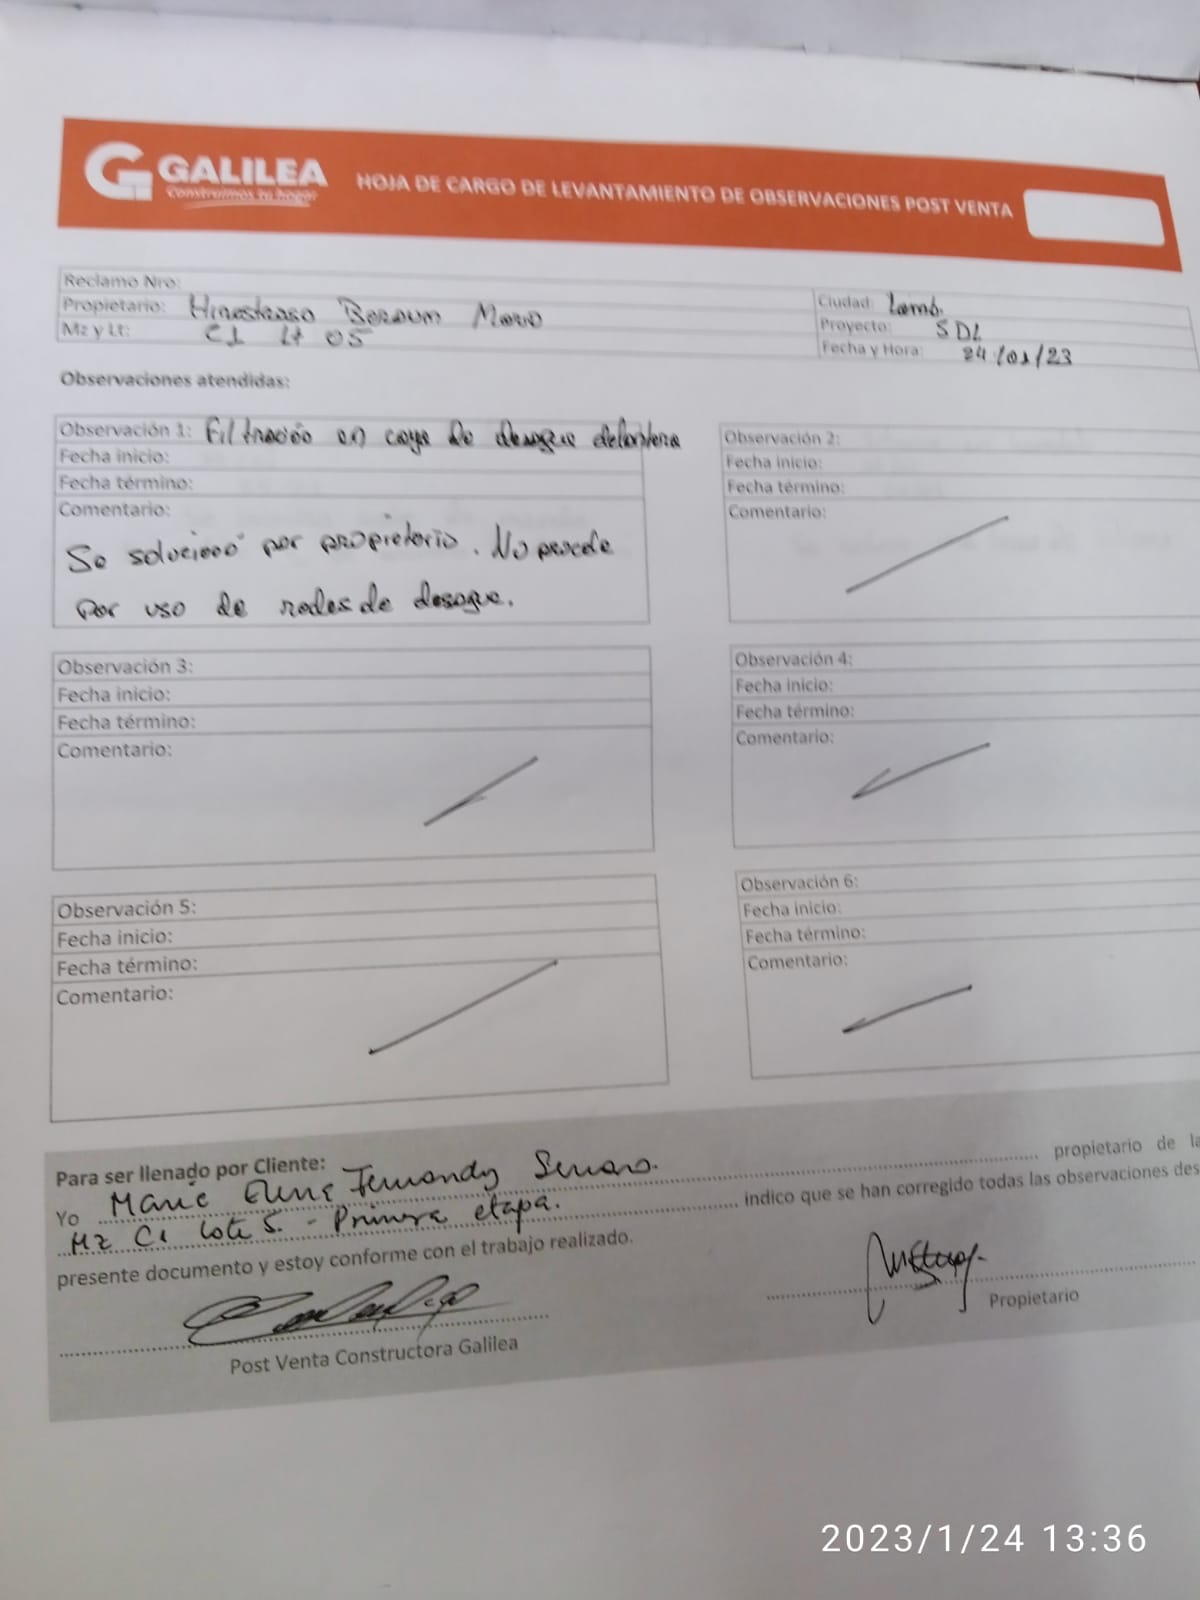 GALILEA
Construimos tu hogar
HOJA DE CARGO DE LEVANTAMIENTO DE OBSERVACIONES POST VENTA
Reclamo Nro:
Propietario: Hinostroso Beraum Mario
Mz y Lt: C1 Lt 05
Ciudad: Lamb.
Proyecto: SDL
Fecha y Hora: 24/01/23
Observaciones atendidas:
Observación 1: Filtración en caja de desague delantera
Fecha inicio:
Fecha término:
Comentario:
Se solucionó por propietario. No procede
por uso de redes de desague.
Observación 2:
Fecha inicio:
Fecha término:
Comentario:
Observación 3:
Fecha inicio:
Fecha término:
Comentario:
Observación 4:
Fecha inicio:
Fecha término:
Comentario:
Observación 5:
Fecha inicio:
Fecha término:
Comentario:
Observación 6:
Fecha inicio:
Fecha término:
Comentario:
Para ser llenado por Cliente:
Yo Marie Elene Fernandez Serrano. propietario de la
Mz C1 lote 5. - Primera etapa. indico que se han corregido todas las observaciones des
presente documento y estoy conforme con el trabajo realizado.
Post Venta Constructora Galilea
Propietario
2023/1/24 13:36